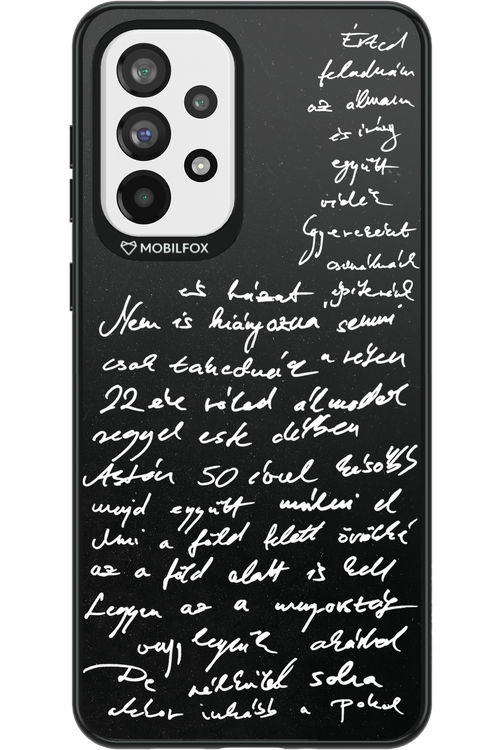 MOBILFOX
Érted
feladnám
az álmaim
és így
együtt
vidék
Gyerekeket
csinálnánk
és házat építenénk
Nem is hiányozna semmi
csak takednác a részen
22 éve rólad álmodok
reggel este délben
Aztán 50 évvel később
majd együtt múlni el
Ami a föld felett örökké
az a föld alatt is kell
Legyen az a mennyország
vagy legyünk akárhol
De nélküled soha
akkor inkább a pokol